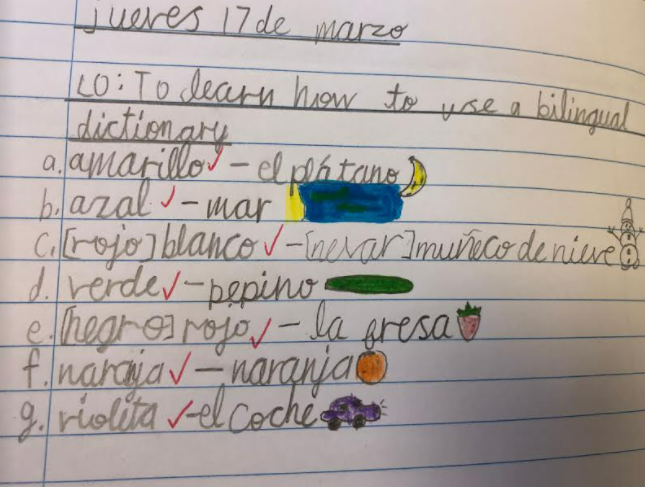 jueves 17 de marzo
LO: To learn how to use a bilingual
dictionary
a. amarillo ✓ - el plátano
b. azal ✓ - mar
c. [rojo] blanco ✓ - [nevar] muñeco de nieve
d. verde ✓ - pepino
e. [negro] rojo ✓ - la fresa
f. naranja ✓ - naranja
g. violeta ✓ - el coche